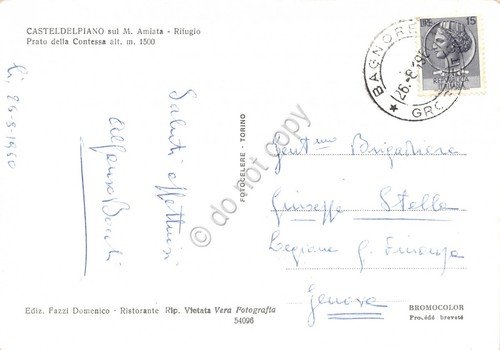 CASTELDELPIANO sul M. Amiata - Rifugio
Prato della Contessa alt. m. 1500
li 26-8-1960
Saluti affettuosi
Alfonso
FOTOCELERE - TORINO
do not copy
15
BAGNORE
26.8.196
GRO
Gent.mo Brigadiere
Giuseppe Stella
Legione G. Finanza
Genova
Ediz. Fazzi Domenico - Ristorante Rip. Vietata Vera Fotografia
54096
BROMOCOLOR
Procédé breveté